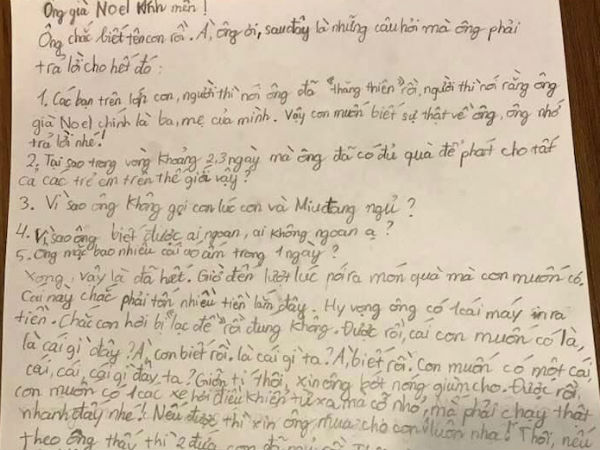 Ông già Noel kính mến!
Ông chắc biết tên con rồi. À, ông ơi, sau đây là những câu hỏi mà ông phải
trả lời cho hết đó:
1. Các bạn trên lớp con, người thì nói ông đã "thăng thiên" rồi, người thì nói rằng ông
già Noel chính là ba, mẹ của mình. Vậy con muốn biết sự thật về ông, ông nhớ
trả lời nhé!
2. Tại sao trong vòng khoảng 2,3 ngày mà ông đã có đủ quà để phát cho tất
cả các trẻ em trên thế giới vậy?
3. Vì sao ông không gọi con lúc con và Miu đang ngủ?
4. Vì sao ông biết được ai ngoan, ai không ngoan ạ?
5. Ông mặc bao nhiêu cái áo ấm trong 1 ngày?
Xong, vậy là đã hết. Giờ đến lượt lúc nói ra món quà mà con muốn có.
Cái này chắc phải tốn nhiều tiền lắm đây. Hy vọng ông có 1 cái máy in ra
tiền. Chắc con hơi bị "lạc đề" rồi đúng không. Được rồi, cái con muốn có là,
là cái gì đây? À, con biết rồi. là cái gì ta? À, biết rồi. Con muốn có một cái,
cái, cái, cái gì đây ta? Giỡn tí thôi, xin ông bớt nóng giùm cho. Được rồi,
con muốn có 1 các xe hơi điều khiển từ xa mà cỡ nhỏ, mà phải chạy thật
nhanh đấy nhé! Nếu được thì xin ông mua cho con luôn nha! Thôi, nếu
theo ông thấy thì 2 đứa con đã ngủ rồi